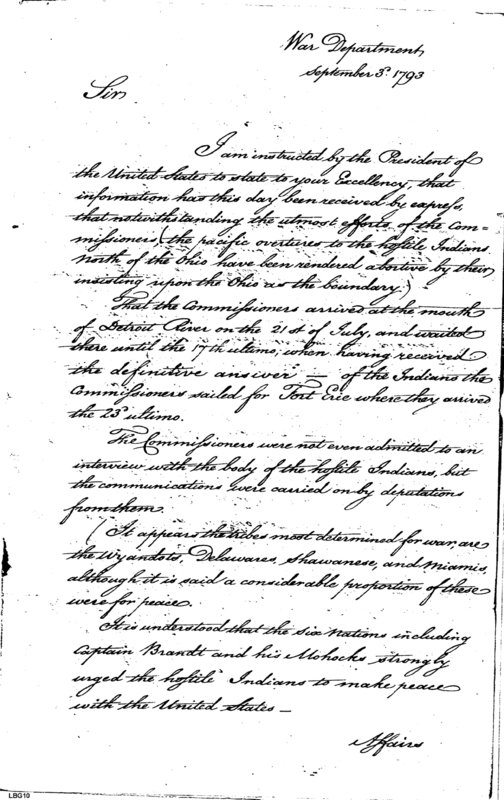 War Department
September 3d. 1793
Sir
I am instructed by the President of
the United States to state to your Excellency, that
information has this day been received by express,
that notwithstanding the utmost efforts of the Com=
missioners (the pacific overtures to the hostile Indians
north of the Ohio have been rendered abortive by their
insisting upon the Ohio as the boundary.)
That the Commissioners arrived at the mouth
of Detroit River on the 21st of July, and waited
there until the 17th ultimo, when having received
the definitive answer — of the Indians the
Commissioners sailed for Fort Erie where they arrived
the 23d ultimo.
The Commissioners were not even admitted to an
interview with the body of the hostile Indians, but
the communications were carried on by deputations
from them.
(It appears the tribes most determined for war, are
the Wyandots, Delawares, Shawanese, and Miamis,
although it is said a considerable proportion of these
were for peace.
It is understood that the six Nations including
Captain Brandt and his Mohocks, strongly
urged the hostile Indians to make peace
with the United States —
Affairs
LBG10